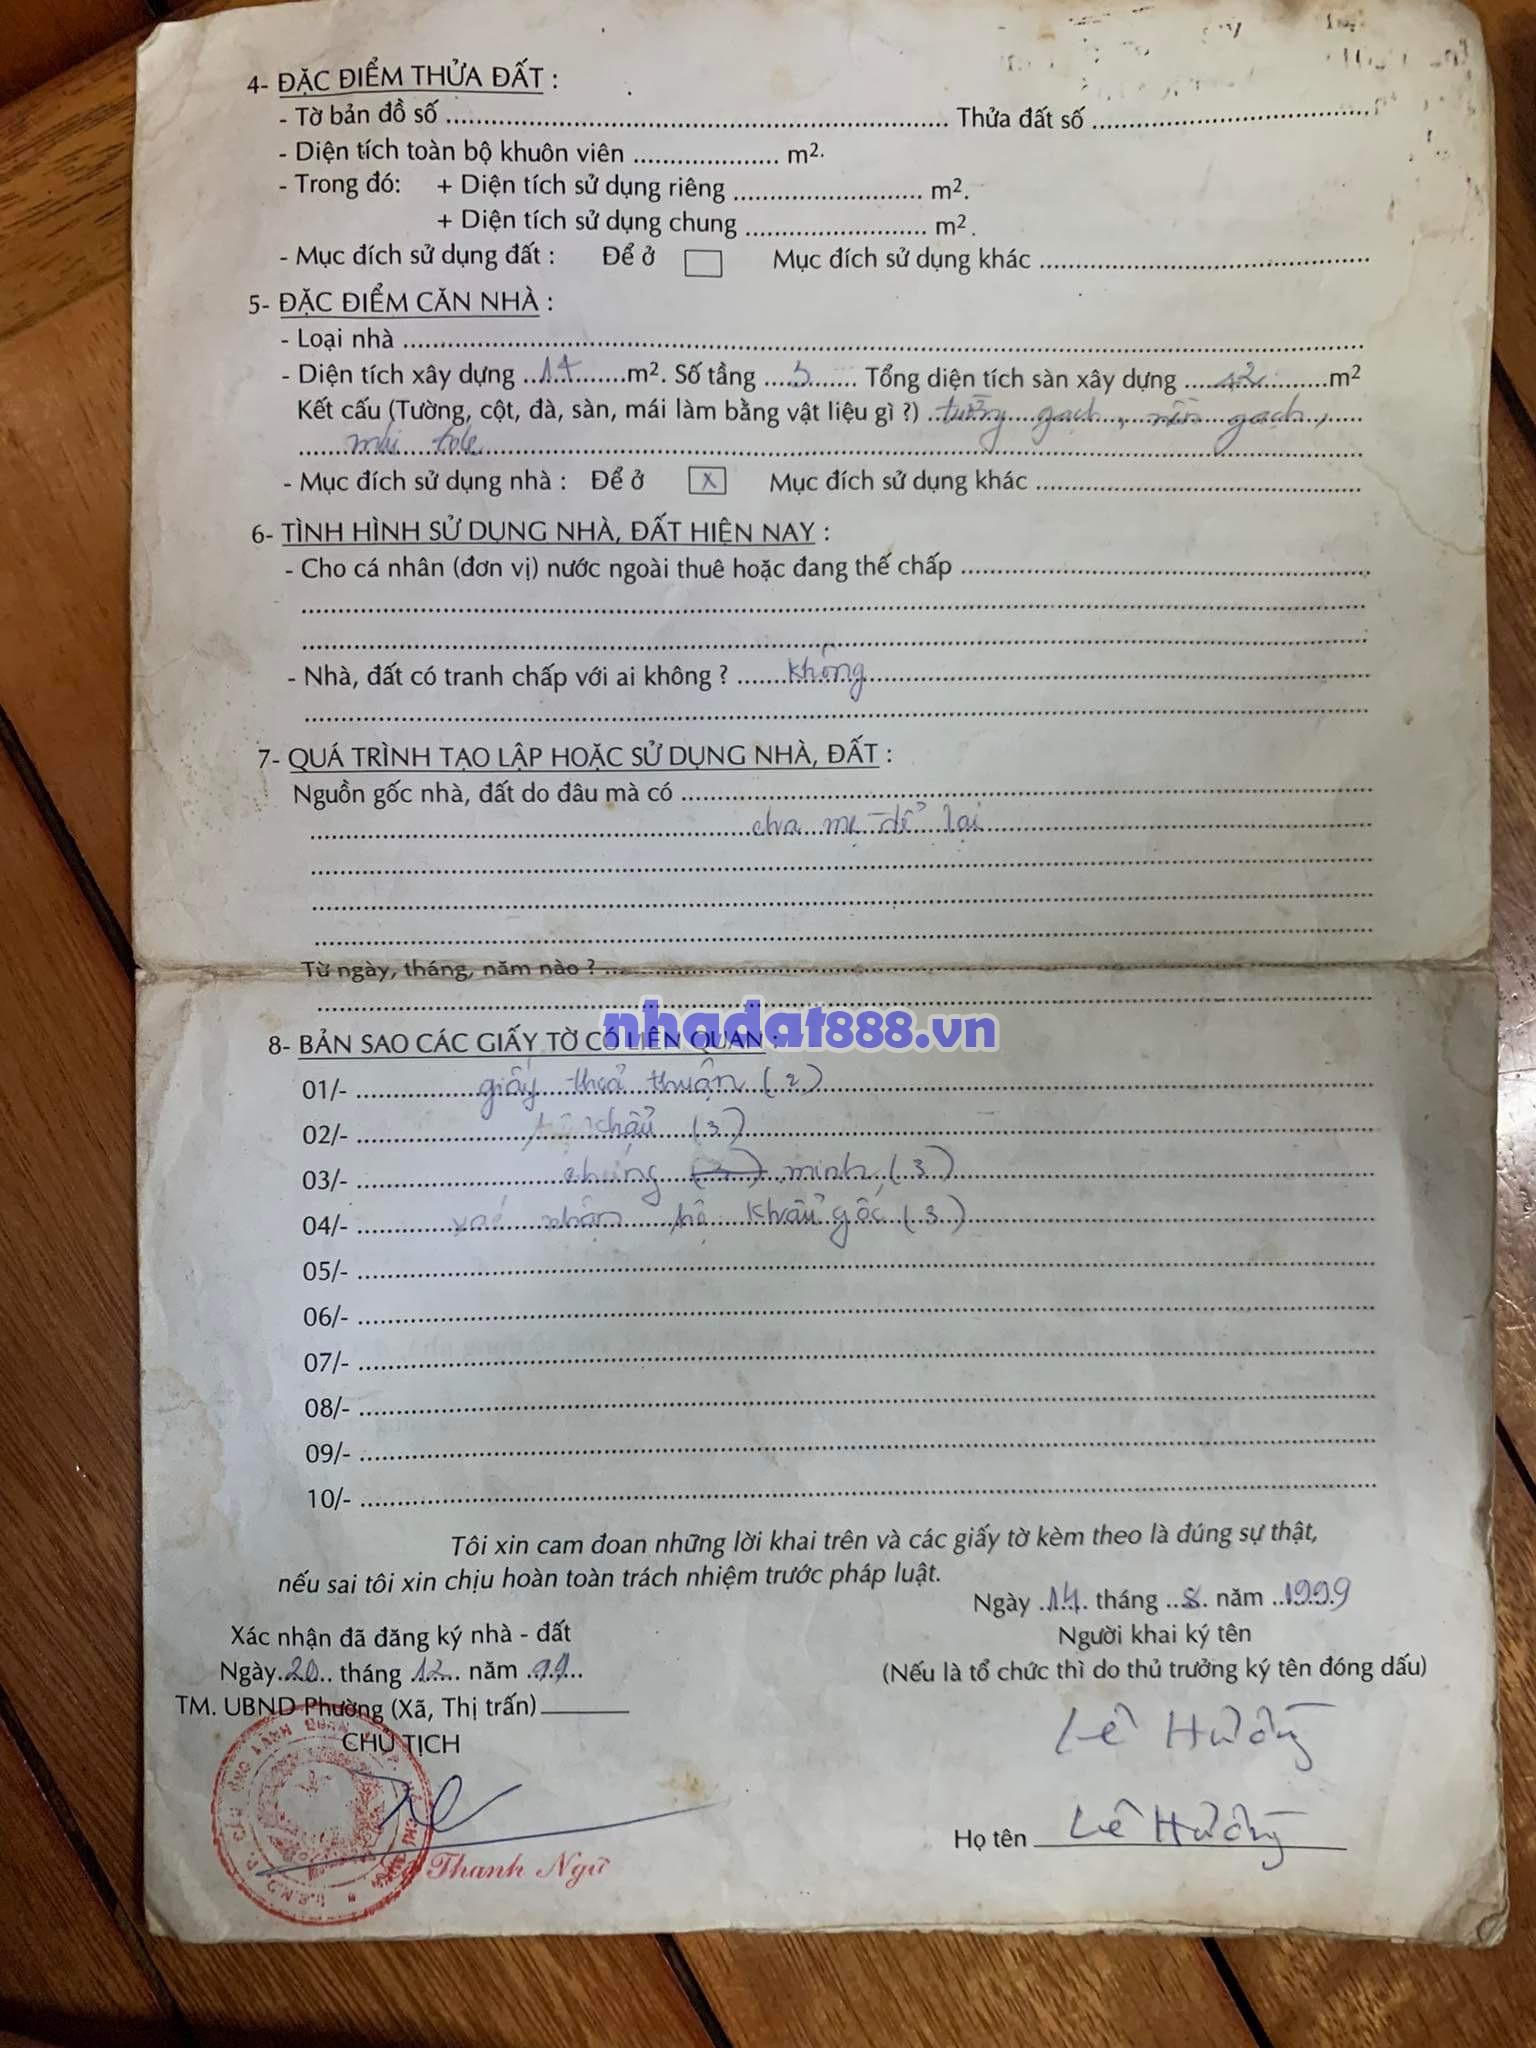 4- ĐẶC ĐIỂM THỬA ĐẤT :
- Tờ bản đồ số ........ Thửa đất số ........
- Diện tích toàn bộ khuôn viên ........ m2.
- Trong đó: + Diện tích sử dụng riêng ........ m2.
+ Diện tích sử dụng chung ........ m2.
- Mục đích sử dụng đất : Để ở Mục đích sử dụng khác ........
5- ĐẶC ĐIỂM CĂN NHÀ :
- Loại nhà ........
- Diện tích xây dựng ........ m2. Số tầng ........ Tổng diện tích sàn xây dựng ........ m2
Kết cấu (Tường, cột, đà, sàn, mái làm bằng vật liệu gì ?) tường gạch, nền gạch,
mái tole
- Mục đích sử dụng nhà : Để ở X Mục đích sử dụng khác ........
6- TÌNH HÌNH SỬ DỤNG NHÀ, ĐẤT HIỆN NAY :
- Cho cá nhân (đơn vị) nước ngoài thuê hoặc đang thế chấp ........
- Nhà, đất có tranh chấp với ai không ? không
7- QUÁ TRÌNH TẠO LẬP HOẶC SỬ DỤNG NHÀ, ĐẤT :
Nguồn gốc nhà, đất do đâu mà có ........
cha mẹ để lại
Từ ngày, tháng, năm nào ? ........
nhadat888.vn
8- BẢN SAO CÁC GIẤY TỜ CÓ LIÊN QUAN :
01/- giấy thoả thuận (2)
02/- hộ khẩu (3)
03/- chứng minh (3)
04/- xác nhận hộ khẩu gốc (3)
05/- ........
06/- ........
07/- ........
08/- ........
09/- ........
10/- ........
Tôi xin cam đoan những lời khai trên và các giấy tờ kèm theo là đúng sự thật,
nếu sai tôi xin chịu hoàn toàn trách nhiệm trước pháp luật.
Ngày 14 tháng 8 năm 1999
Người khai ký tên
(Nếu là tổ chức thì do thủ trưởng ký tên đóng dấu)
Lê Hường
Họ tên Lê Hường
Xác nhận đã đăng ký nhà - đất
Ngày 20 tháng 12 năm 99
TM. UBND Phường (Xã, Thị trấn)
CHỦ TỊCH
Thanh Ngữ